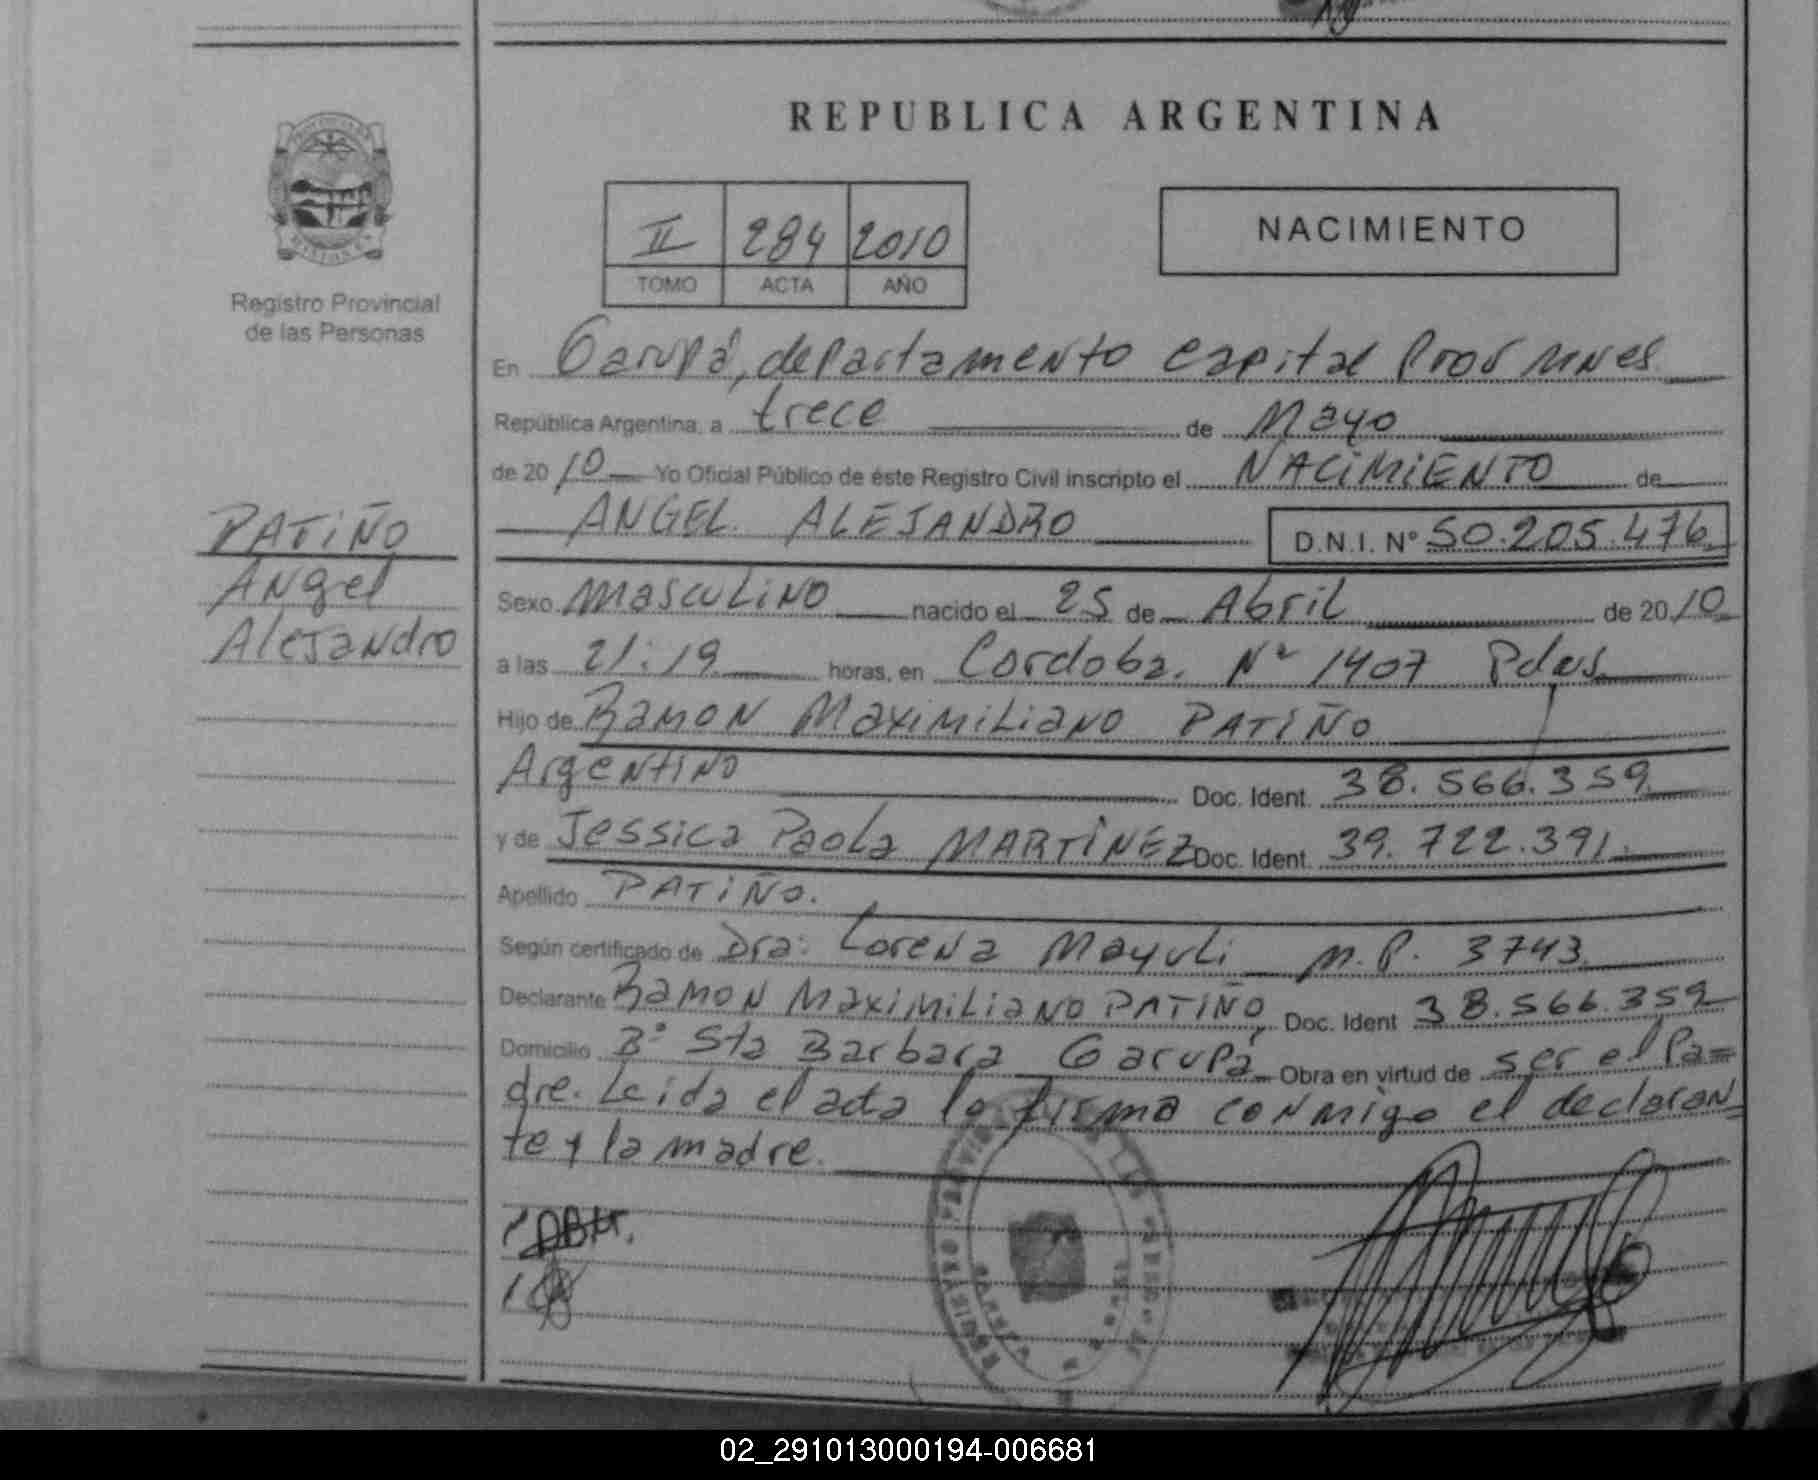 REPUBLICA ARGENTINA
II 284 2010
TOMO ACTA AÑO
NACIMIENTO
Registro Provincial
de las Personas
PATIÑO
Angel
Alejandro
En Garupá, departamento Capital
República Argentina, a trece de Mayo
de 2010 Yo Oficial Público de éste Registro Civil inscripto el NACIMIENTO de
ANGEL ALEJANDRO D.N.I. Nº 50.205.476
Sexo masculino nacido el 25 de Abril de 2010
a las 21:19 horas, en Cordoba. Nº 1407 Pdas
Hijo de Ramon Maximiliano PATIÑO
Argentino Doc. Ident. 38.566.359
y de Jessica Paola MARTÍNEZ Doc. Ident. 39.722.391
Apellido PATIÑO.
Según certificado de Dra: Lorena Mayuli M.P. 3743
Declarante Ramon Maximiliano PATIÑO, Doc. Ident 38.566.359
Domicilio Bº Sta Barbara Garupá Obra en virtud de ser el Pa=
dre. Leida el acta la firma conmigo el declaran=
te y la madre.
02_291013000194-006681